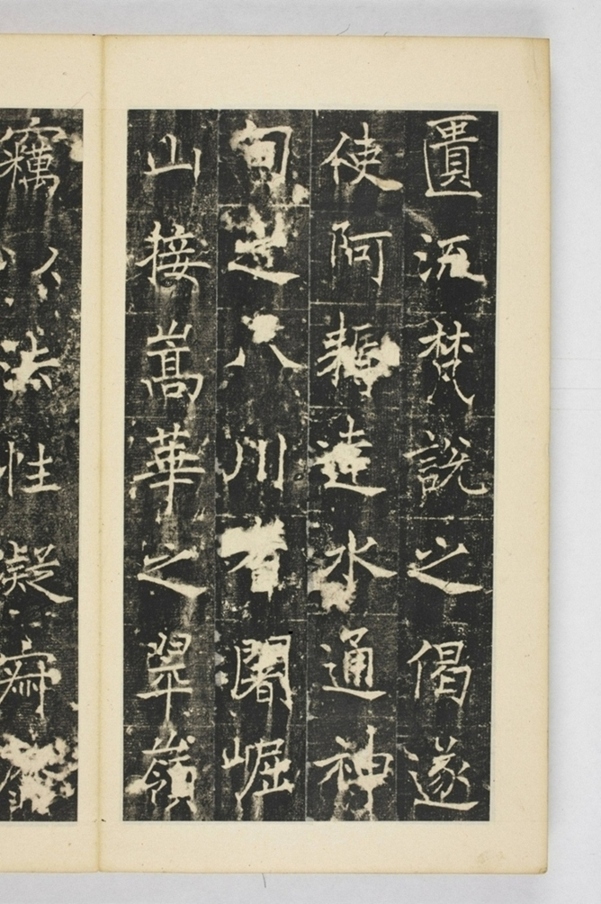 匱流梵說之偈遂
使阿耨達水通神
甸之八川耆闍崛
山接嵩華之翠嶺
竊以法性凝寂靡